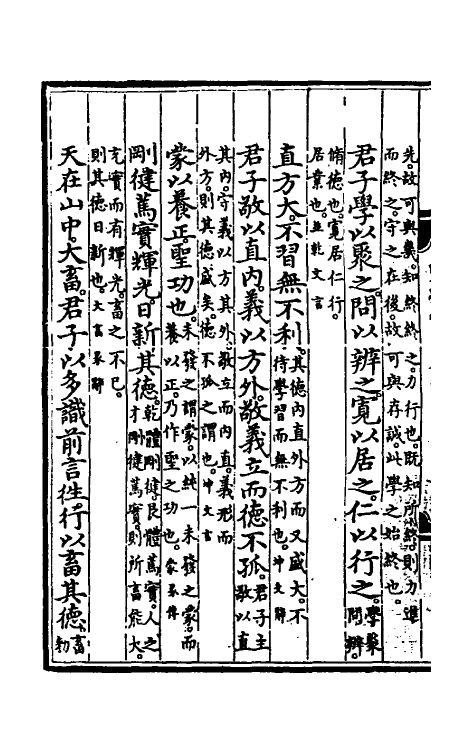 先。故可與幾。知終終之。力行也。既知所終。則力進
而終之。守之在後。故可與存誠。此學之始終也。
君子學以聚之。問以辨之。寬以居之。仁以行之。學聚
問辨。
脩德也。寬居仁行。
居業也。並乾文言
直方大。不習無不利。其德內直外方而又盛大。不
待學習而無不利也。坤文辭
君子敬以直內。義以方外。敬義立而德不孤。君子主
敬以直
其內。守義以方其外。敬立而內直。義形而
外方。則其德盛矣。德不孤之謂也。坤文言
蒙以養正。聖功也。未發之謂蒙。以純一未發之蒙。而
養以正。乃作聖之功也。蒙彖傳
剛健篤實輝光。日新其德。乾體剛健。艮體篤實。人之
才剛健篤實。則所畜能大。
充實而有輝光。畜之不已。
則其德日新也。大言彖辭
天在山中。大畜。君子以多識前言往行。以畜其德。畜
物